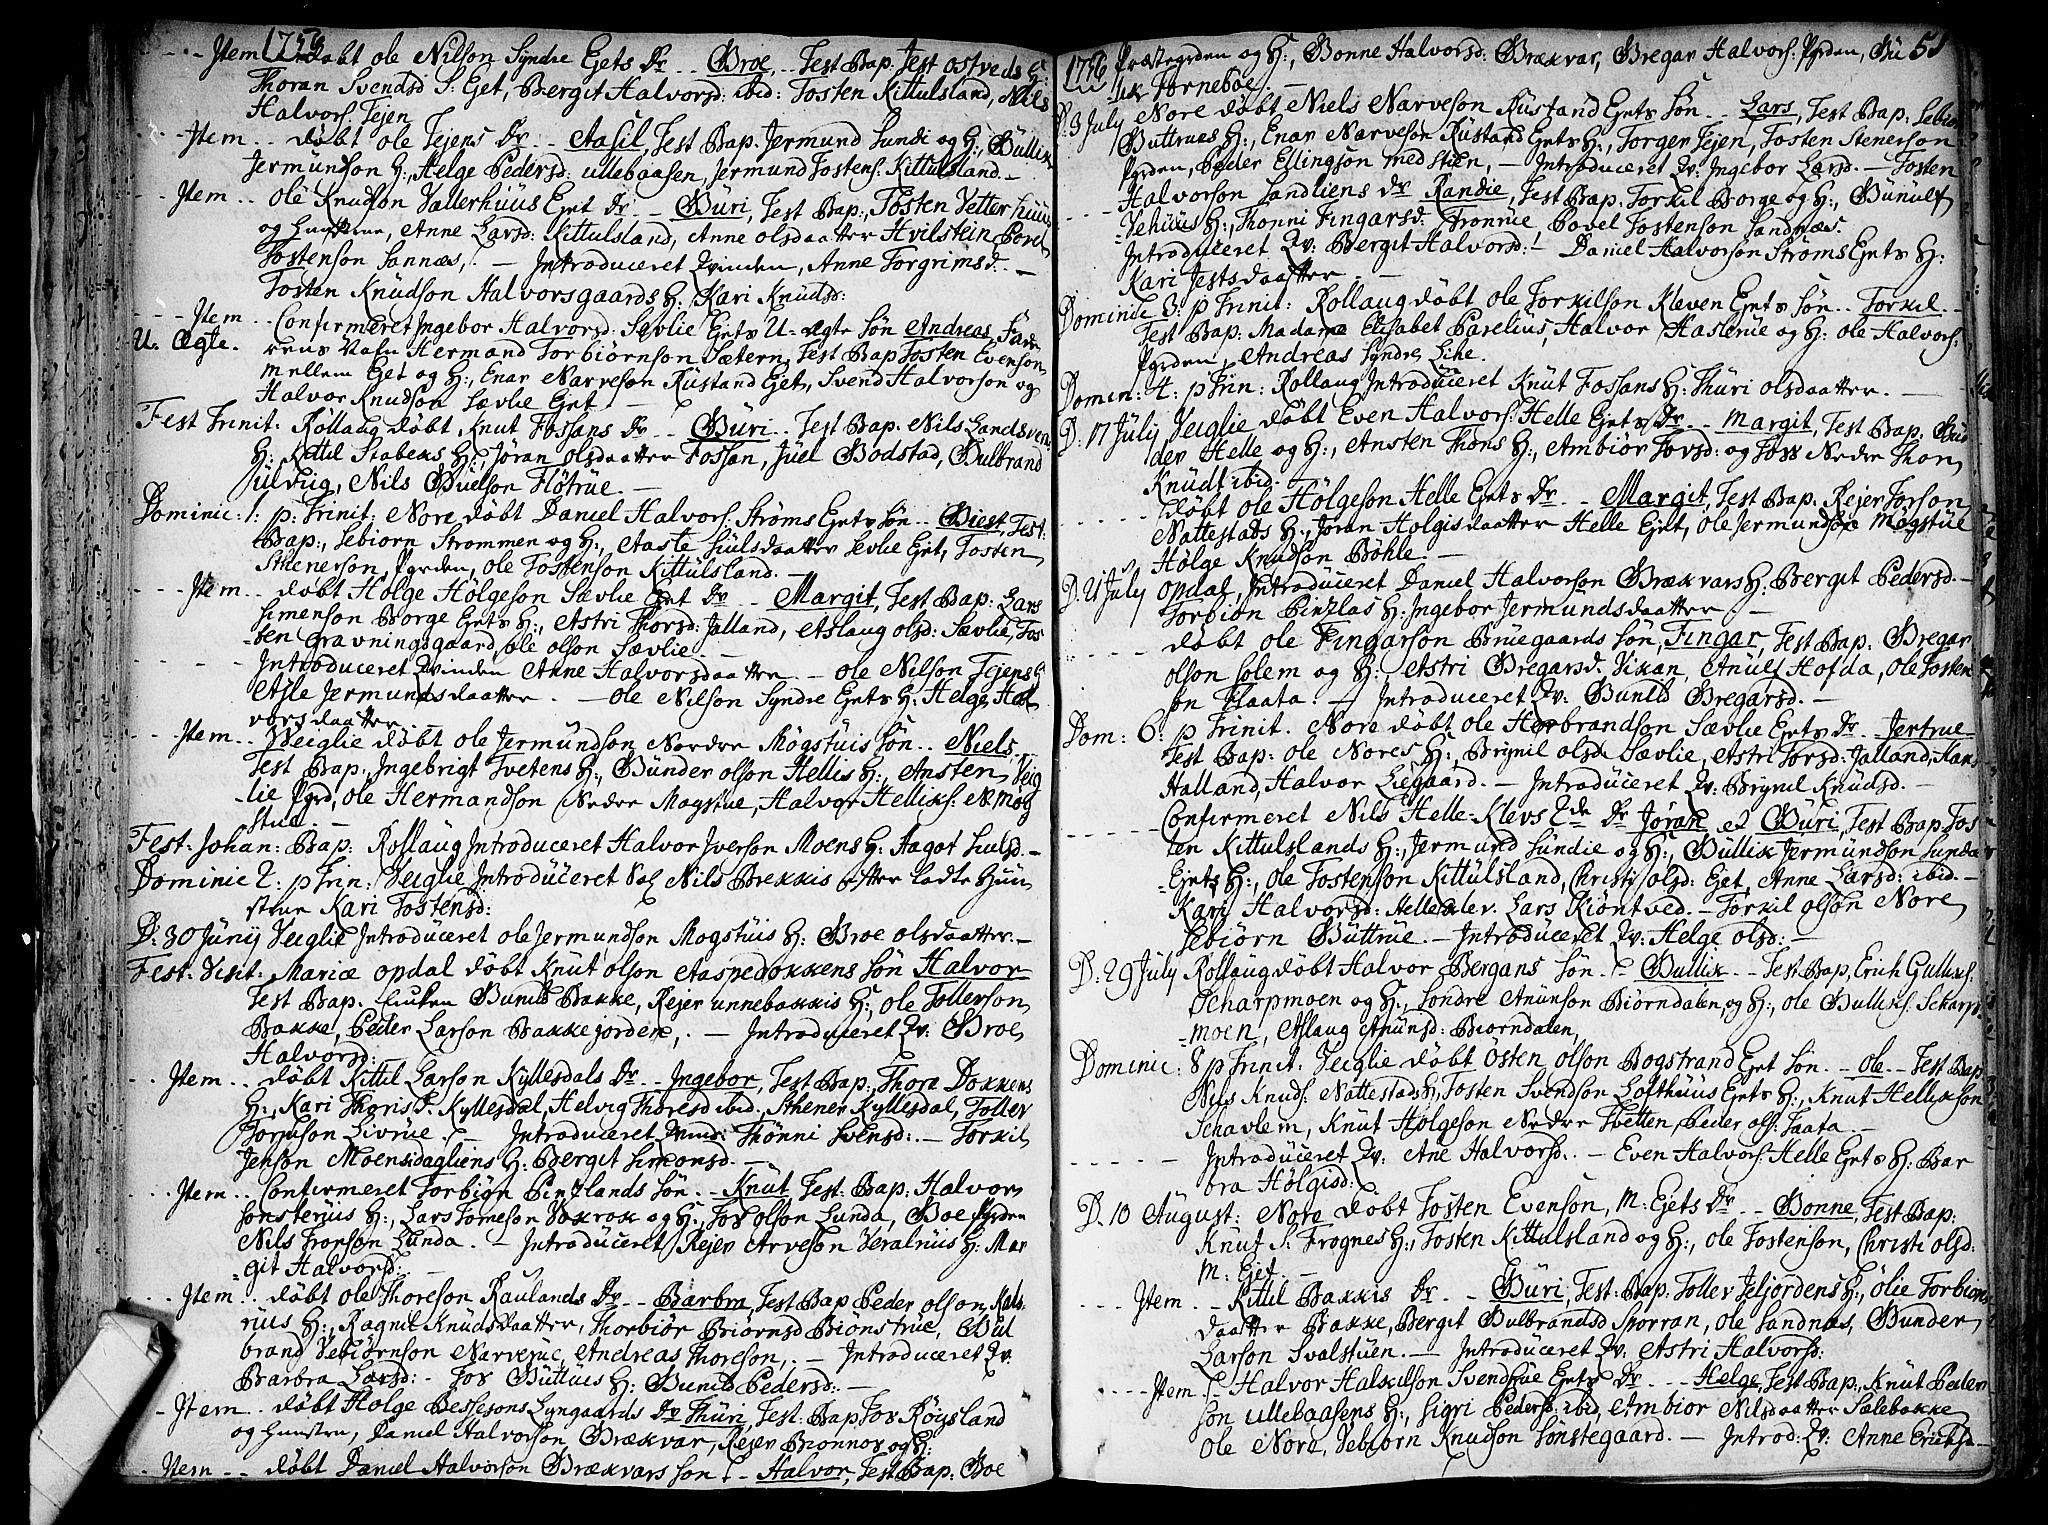 1756
- - - Item - døbt ole Nilson Syndre Ejets Dr - - Broe, - Test Bap. Jest ostveds H:
Thoran Svendsd S: Ejet, Bergit Halvorsd: ibid: Tosten Kittulsland, Nils
Halvors: Tejen
- - - Item - - døbt ole Tejens Dr - - Aasil, Test Bap. Jermund Lundi og H:, Gullik
Jermundson H:, Helge Pedersd: ullebaasen, Jermund Tostens: Kittulsland. -
- - - Item - - ole Knudson Vatterhuus Ejet Dr - - Guri, Test Bap:, Tosten Vetterhuus
og hustrue, Anne Larsd: Kittulsland, Anne olsdaatter Hvilstein, Povel
Tostenson Sannæs, - Introduceret Qvinden, Anne Torgrimsd. -
Tosten Knudson Halvorsgaards H: Kari Knudsd:
- - - Item - - Confirmeret Ingebor Halvorsd: Sævlie Ejets U-ægte søn Andreas, Fade
U. Ægte. rens Nafn Hermand Torbiørnson Sætern, Test Bap Tosten Evenson
mellem Ejet og H:, Enar Narveson Rustand Ejet, Svend Halvorson og
Halvor Knudson Sævlie Ejet -
Fest Trinit: Rollaug døbt Knut Fossans Dr - - Guri - - Test Bap. Nils Landsverk
H:, Kittil Stabeks H:, Jøran olsdaatter Fossan, Juel Bodstad, Gulbrand
Julvug, Nils Guelson Fløtrue. -
Dominic: 1. p: Trinit: Nore døbt Daniel Halvors: Strøms Ejets søn - - Giest, Test:
Bap:, Sebiorn Strommen og H:, Aaste Siulsdaatter Sevlie Ejet, Tosten
Sthenerson, Pgrden, ole Tostenson Kittulsland. -
- - - Item - - døbt Holge Hølgeson Sævlie Ejet Dr - - Margit, Test Bap: Lars
Simenson Borge Ejets H:, Astri Thorsd: Jalland, Aslaug olsd: Sævlie, Tos
ten Gravningsgaard, ole olson Sævlie -
Introduceret Qvinden Anne Halvorsdaatter. - ole Nilson Tejens H
Aasle Jermundsdaatter. - ole Nilson Syndre Ejets H: Helge Hal
vorsdaatter. -
- - - Item - - Veiglie døbt ole Jermundson Nordre Møgstuis søn - - Niels, -
Test Bap:, Ingebrigt Tvetens H:, Gunder olson Hellis H:, Ansten Veig
lie Pgrd, ole Hermandson Nedre Mogstue, Halvor Helliks: N. Møg
stue. -
Fest. Johan: Bap: Rollaug Introduceret Halvor Iverson Moens H: Aagot Siulsd. -
Dominic 2: p Trin: Veiglie Introduceret Sal Nils Brekkis efter ladte Hun
strue Kari Tostensd:
D. 30 Junij Veiglie Introduceret ole Jermundson Mogstuis H: Broe olsdaatter. -
Fest: Visit: Mariæ opdal døbt Knut olson Aaspedokkens søn Halvor
Test Bap. Enken Gunild Bakke, Rejer unnebakkis H:, ole Tollerson
Bakke, Peder Larson Bakkejorden, - Introduceret Qv: Broe
Halvorsd:
- - Item - - døbt Kittil Larson Kyllesdals Dr - - Ingebor, Test Bap:, Thore Dokkens
H:, Kari Thoris D. Kyllesdal, Helvig Thoresd ibid., Sthener Kyllesdal, Toller
Torjuson Livrue. - Introduceret Qvind: Thønni Svensd: - Torkil
Jenson Moensdagliens H: Bergit Simonsd. -
- - Item - - Confirmeret Torbiørn Pintzlands søn. - Knut, Test: Bap: Halvor
Jonsteruus H:, Lars Tomeson Vokrok og H:, Tor olson Lunda, Boe Pgrden
Nils Tronson Lunda. - Introduceret Rejer Arveson Veralruus H: Mar
git Halvorsd: -
- - Item - - døbt ole Thoreson Raulands Dr - - Barbra, Test Bap Peder olson Kals
ruus H:, Ragnil Knudsdaatter, Thorbiør Biørnsd Bionstrue, Gul
brand Vebiørnson Narverue, Andreas Thoreson, - Introduceret Qv:
Barbra Larsd: - Tor Buttuus H: Gunild Pedersd: -
- Item - - døbt Holge Bessesons Lyngaards Dr Thuri, Test: Bap Tor Røysland
og hustru, Daniel Halvorson Brækvar, Rejer Bronnor og H:
- - Item - - døbt Daniel Halvorson Brækvars søn - - Halvor, Test Bap: Boe
1756
51
Præstegrden og H:, Gonne Halvorsd: Brækvar, Bregar Halvors: Pgrden, Gu
lik Torneboe. -
D. 3 July Nore døbt Niels Narveson Rustand Ejets søn - - Lars, Test Bap: Sebiorn
Buttrues H:, Enar Narveson Rustand Ejets H:, Torger Tejen, Tosten Stenerson
Pgrden, Peder Ellingson medstien, - Introduceret Qv: Ingebor Larsd. - Tosten
- - - - Halvorson Sandliens Dr Randie, Test Bap: Torkil Borge og H:, Gunulf
Vehuus H:, Thonni Fingarsd: Tronrue, Povel Tostenson Sandnæs.
Introduceret Qv: Bergit Halvorsd: - Daniel Halvorson Strøms Ejets H:
Kari Jestsdaatter - -
Dominic 3: p Trinit: Rollaug døbt ole Torkilson Kleven Ejets søn - - Torkil. -
Test Bap: Madame Elisabet Parelius, Halvor Haslerue og H: ole Halvors:
Pgrden, Andreas Syndre Lihe.
Domin: 4: p Trin: Rollaug Introduceret Knut Fossans H: Thuri olsdaatter. -
D. 17 July Veiglie døbt Even Halvors: Helle Ejets Dr - - Margit, Test Bap. Gun
der Helle og H:, Ansten Thons H:, Ambiør Torsd: og Tor Nedre Thon
Knudt ibid. -
- - - - Døbt ole Hølgeson Helle Ejets Dr - - Margit, Test Bap. Rejer Torson
Nattestads H:, Jøran Holgisdaatter Helle Ejet, ole Jermundson Møgstue
Hølge Knudson Bøhle. -
D. 21 July opdal, Introduceret Daniel Halvorson Brækvars H: Bergit Pedersd. -
Torbion Pinzlas H: Ingebor Jermundsdaatter -
- - - - døbt ole Fingarson Bruegaards søn, Fingar, Test Bap. Bregar
olson Solem og H:, Astri Bregarsd. Vikan, Anulf Hofda, ole Tosten
son Flaata. - Introduceret Qv: Gunild Bregarsd. -
Dom: 6: p Trinit. Nore døbt ole Herbrandson Sævlie Ejets Dr - - Jertrue -
Test Bap: ole Nores H:, Brynil olsd Sævlie, Astri Torsd: Jalland, Hans
Halland, Halvor Liegaard. - Introduceret Qv: Brynil Knudsd. -
- - - - Confirmeret Nils Helle-Klevs 2de Dr Jøran et Guri, Test Bap. Tos
ten Kittulslands H:, Jermund Sundie og H:, Gullik Jermundson Sunda
Ejets H:, ole Tostenson Kittulsland, Christi olsd: Ejet, Anne Larsd: ibid. -
Kari Halvorsd: Helleklev. Lars Kiøntved. - Torkil olson Nore
Sebiørn Buttrue. - Introduceret Qv: Helge olsd: -
D. 29 July Rollaug døbt Halvor Bergans søn - Gullik - - Test Bap, Erich Gulliks:
Scharpmoen og H:, Sondre Anunson Biørndalen og H:, ole Gulliks: Scharp
moen, Aslaug Anunsd: Biorndalen,
Dominic: 8 p Trinit. Veiglie døbt Østen olson Bogstrand Ejet søn - - ole - - Test Bap
Nils Knuds: Nattestad H:, Tosten Svendson Lofthuus Ejets H:, Knut Hellikson
Schavlem, Knut Holgeson Nedre Tvetten, Peder ols: Taata. -
- - - - Introduceret Qv: Ane Halvorsd. - Even Halvors: Helle Ejets H: Bar
bra Hølgisd:
D. 10 August: Nore døbt Tosten Evenson, M: Ejets Dr - - Gonne, Test Bap:
Knut S: Frognes H:, Tosten Kittulsland og H:, ole Tostenson, Christi olsd:
M: Ejet. -
- - - Item - - Kittil Bakkis Dr - - Guri, Test: Bap: Toller Jeljordens H:, Olie Torbiøns
daatter Bakke, Bergit Gulbrandsd Skorran, ole Sandnæs, Gunder
Larson Svalstuen. - Introduceret Qv: Astri Halvorsd:
- - - Item - Halvor Halkilson Svendsrue Ejets Dr - - - Helge, Test Bap:, Knut Peder
son ullebaasens H:, Sigri Pedersd: ibid, Ambior Nilsdaatter Sælebakke
ole Nore, Vebiorn Knudson Sønstegaard. - Introd: Qv: Anne Eriksd -